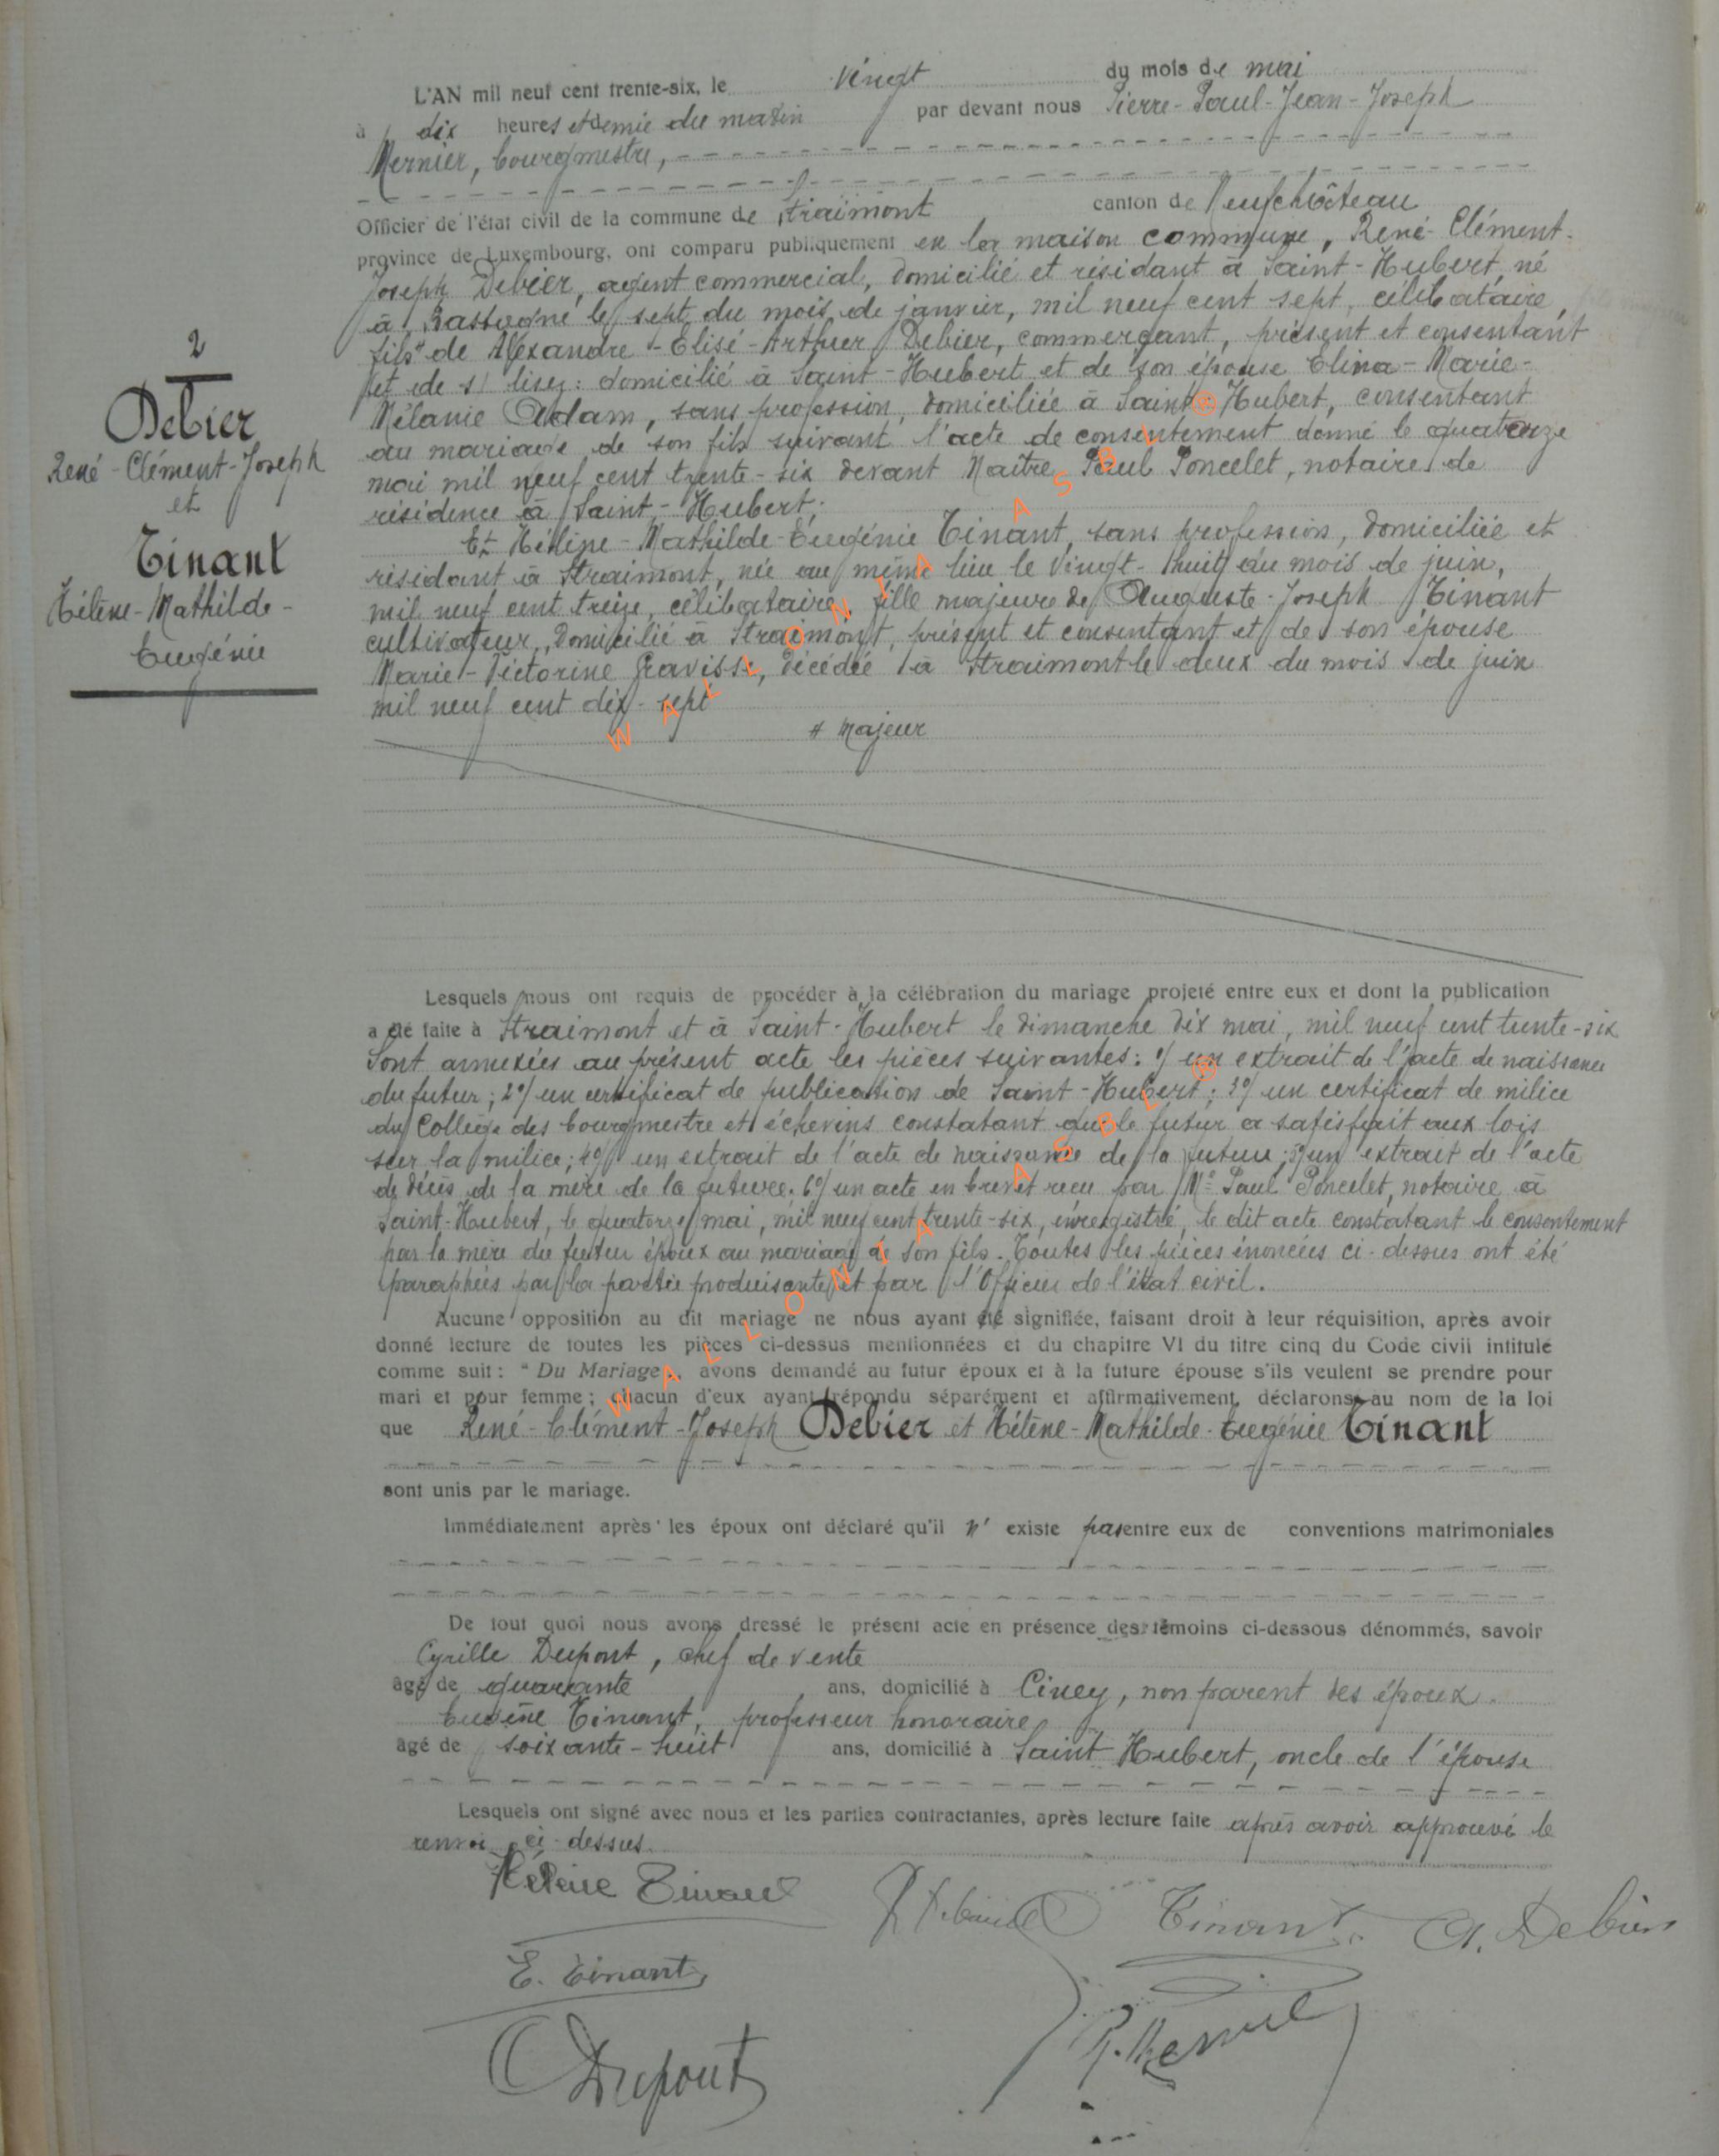 2
Debier
René-Clément-Joseph
et
Tinant
Hélène-Mathilde-
Eugénie
L'AN mil neuf cent trente-six, le vingt du mois de mai
à dix heures et demie du matin par devant nous Pierre-Paul-Jean-Joseph
Mernier, bourgmestre,
Officier de l'état civil de la commune de Straimont canton de Neufchâteau
province de Luxembourg, ont comparu publiquement en la maison commune, René-Clément-
Joseph Debier, agent commercial, domicilié et résidant à Saint-Hubert, né
à Bastogne le sept du mois de janvier, mil neuf cent sept, célibataire,
fils # de Alexandre-Elisé-Arthur Debier, commerçant, présent et consentant
et de s/ lisez: domicilié à Saint-Hubert et de son épouse Elina-Marie-
Mélanie Adam, sans profession, domiciliée à Saint-Hubert, consentant
au mariage de son fils suivant l'acte de consentement donné le quatorze
mai mil neuf cent trente-six devant Maître Paul Poncelet, notaire de
résidence à Saint-Hubert;
Et Hélène-Mathilde-Eugénie Tinant, sans profession, domiciliée et
résidant à Straimont, née au même lieu le vingt-huit du mois de juin,
mil neuf cent treize, célibataire, fille majeure de Auguste-Joseph Tinant
cultivateur, domicilié à Straimont, présent et consentant et de son épouse
Marie-Victorine Gravisse, décédée à Straimont le deux du mois de juin
mil neuf cent dix-sept
# majeur
Lesquels nous ont requis de procéder à la célébration du mariage projeté entre eux et dont la publication
a été faite à Straimont et à Saint-Hubert le dimanche dix mai, mil neuf cent trente-six
Sont annexées au présent acte les pièces suivantes: 1°/ un extrait de l'acte de naissance
du futur; 2°/ un certificat de publication de Saint-Hubert; 3°/ un certificat de milice
du Collège des bourgmestre et échevins constatant que le futur a satisfait aux lois
sur la milice; 4°/ un extrait de l'acte de naissance de la future; 5°/ un extrait de l'acte
de décès de la mère de la future; 6°/ un acte en brevet reçu par Me Paul Poncelet, notaire à
Saint-Hubert, le quatorze mai, mil neuf cent trente-six, enregistré, le dit acte constatant le consentement
par la mère du futur époux au mariage de son fils. Toutes les pièces énoncées ci-dessus ont été
paraphées par la partie produisante et par l'Officier de l'état civil.
Aucune opposition au dit mariage ne nous ayant été signifiée, faisant droit à leur réquisition, après avoir
donné lecture de toutes les pièces ci-dessus mentionnées et du chapitre VI du titre cinq du Code civil intitulé
comme suit: " Du Mariage ", avons demandé au futur époux et à la future épouse s'ils veulent se prendre pour
mari et pour femme; chacun d'eux ayant répondu séparément et affirmativement, déclarons au nom de la loi
que René-Clément-Joseph Debier et Hélène-Mathilde-Eugénie Tinant
sont unis par le mariage.
Immédiatement après les époux ont déclaré qu'il n' existe pas entre eux de conventions matrimoniales
De tout quoi nous avons dressé le présent acte en présence des témoins ci-dessous dénommés, savoir
Cyrille Dupont, chef de vente
âgé de quarante ans, domicilié à Ciney, non parent des époux.
Eugène Tinant, professeur honoraire
âgé de soixante-huit ans, domicilié à Saint-Hubert, oncle de l'épouse
Lesquels ont signé avec nous et les parties contractantes, après lecture faite après avoir approuvé le
renvoi ci-dessus.
Hélène Tinant
Tinant A. Debier
E. Tinant
P. Mernier
C Dupont
WALLONIA ASBL ®
WALLONIA ASBL ®